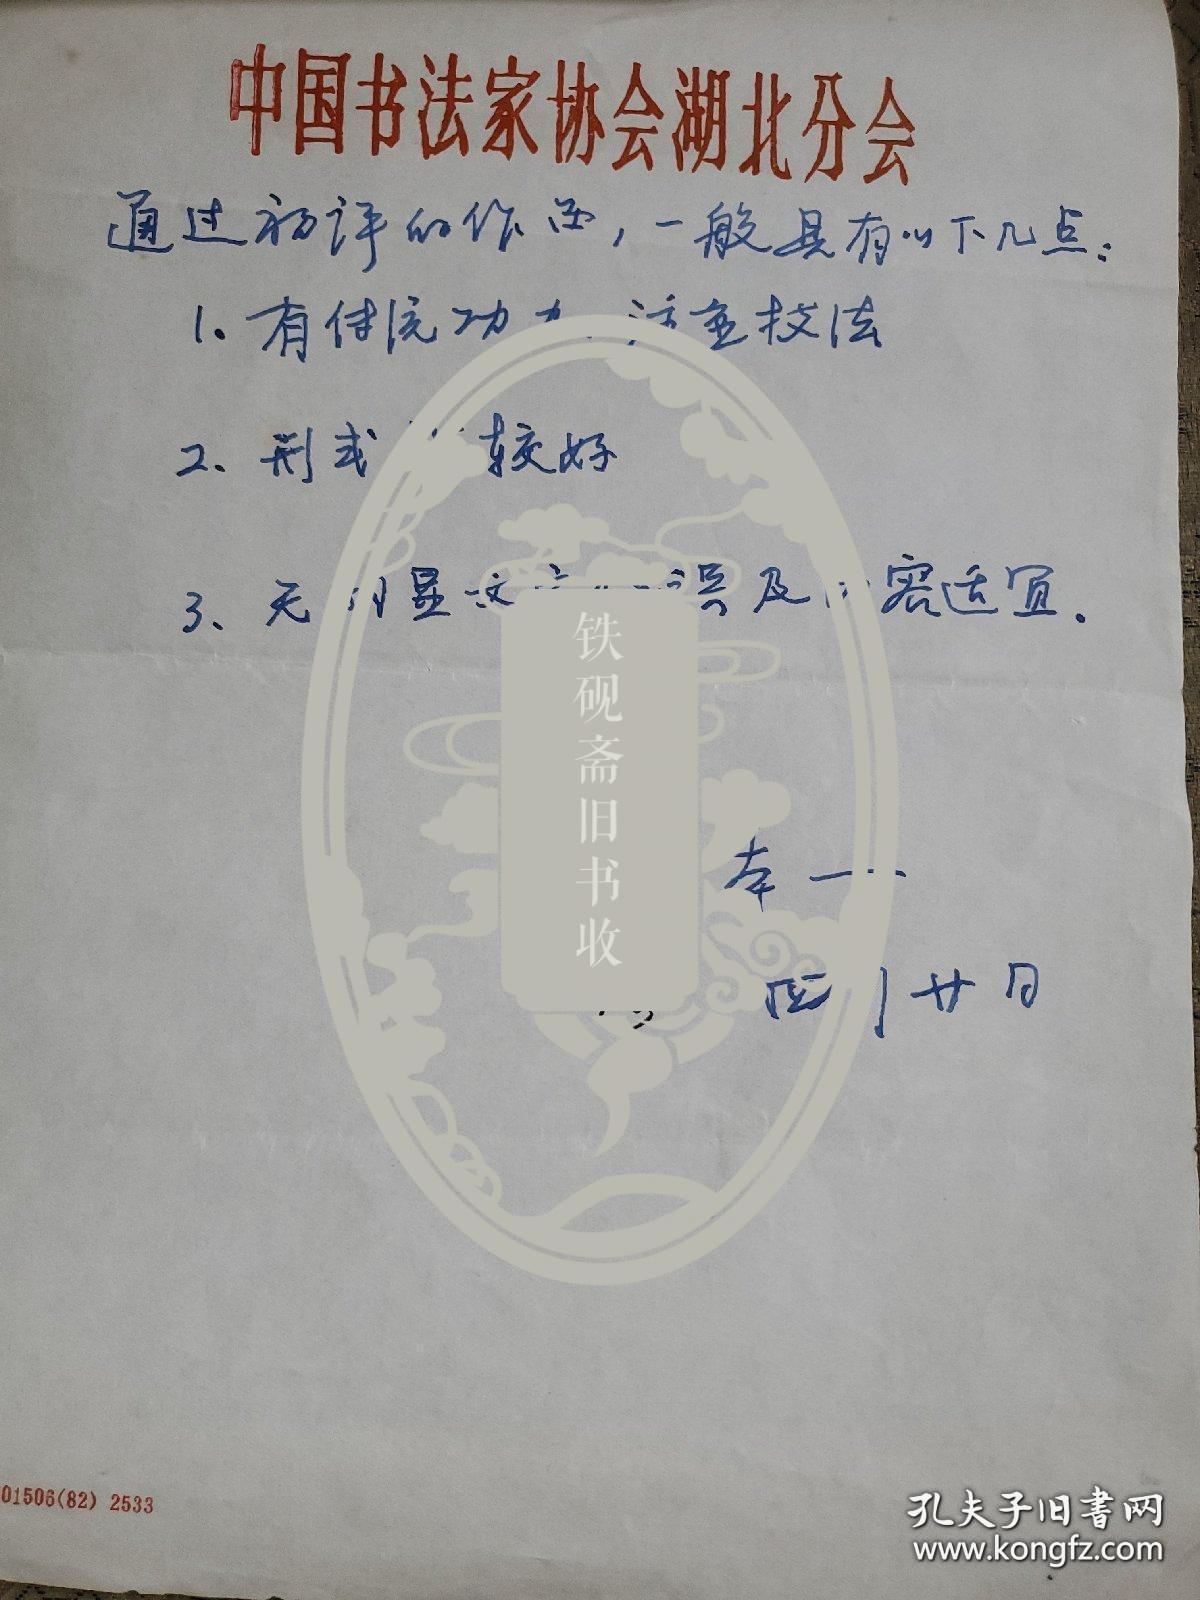 中国书法家协会湖北分会
通过初评的作品，一般具有以下几点：
1. 有传统功力 注重技法
2、形式 较好
3、无明显文 误及内容适宜.
铁砚斋旧书收
四月廿日
01506(82) 2533
孔夫子旧书网
www.kongfz.com